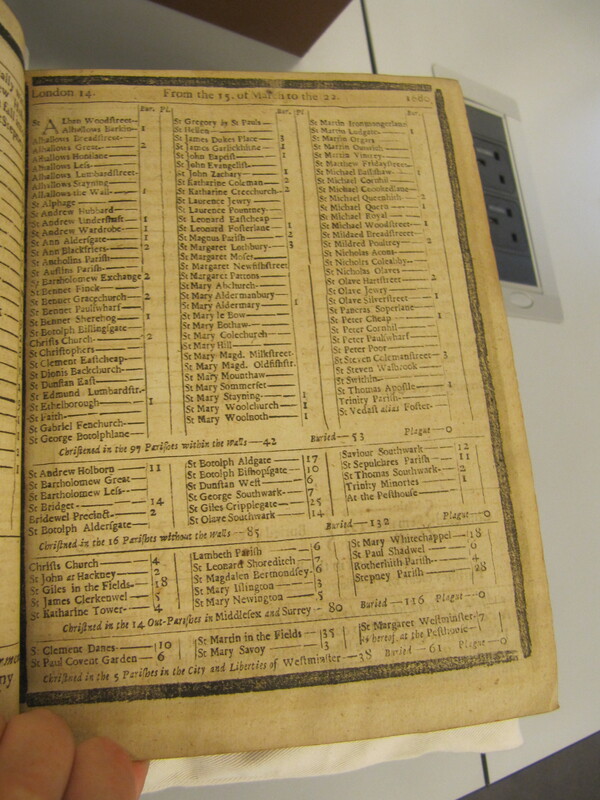 London 14. From the 15. of March to the 22. 1680
Bur. Pl.
St ALban Woodstreet
Alhallows Barkin 1
Alhallows Breadstreet
Alhallows Great 2
Alhallows Honilane
Alhallows Less
Alhallows Lumbardstreet
Alhallows Stayning
Alhallows the Wall 1
St Alphage
St Andrew Hubbard
St Andrew Undershaft 1
St Andrew Wardrobe 1
St Ann Aldersgate 1
St Ann Blackfriers 2
St Antholins Parish
St Austins Parish
St Bartholomew Exchange 2
St Bennet Finck
St Bennet Gracechurch 2
St Bennet Paulswharf
St Bennet Sherehog 1
St Botolph Billingsgate
Christs Church 2
St Christophers
St Clement Eastcheap
St Dionis Backchurch
St Dunstan East
St Edmund Lumbardstr.
St Ethelborough 1
St Faith
St Gabriel Fenchurch
St George Botolphlane
Bur. Pl
St Gregory by St Pauls
St Hellen
St James Dukes Place 3
St James Garlickhithe 1
St John Baptist 1
St John Evangelist
St John Zachary 1
St Katharine Coleman 2
St Katharine Creechurch 2
St Laurence Jewry
St Laurence Pountney
St Leonard Eastcheap
St Leonard Fosterlane 1
St Magnus Parish 2
St Margaret Lothbury 3
St Margaret Moses
St Margaret Newfishstreet
St Margaret Pattons
St Mary Abchurch
St Mary Aldermanbury
St Mary Aldermary 1
St Mary le Bow
St Mary Bothaw
St Mary Colechurch
St Mary Hill
St Mary Magd. Milkstreet
St Mary Magd. Oldfishstr.
St Mary Mounthaw
St Mary Sommerset
St Mary Stayning 1
St Mary Woolchurch 1
St Mary Woolnoth 1
Bur.
St Martin Iremongerlane
St Martin Ludgate 1
St Martin Orgars
St Martin Outwich
St Martin Vintrey
St Matthew Fridaystreet
St Michael Bassishaw 1
St Michael Cornhil
St Michael Crookedlane
St Michael Queenhith 2
St Michael Quern 1
St Michael Royal
St Michael Woodstreet 1
St Mildred Breadstreet
St Mildred Poultrey 2
St Nicholas Acons
St Nicholas Coleabby
St Nicholas Olaves
St Olave Hartstreet 2
St Olave Jewry
St Olave Silverstreet 1
St Pancras Soperlane
St Peter Cheap 1
St Peter Cornhil
St Peter Paulswharf
St Peter Poor
St Steven Colemanstreet 3
St Steven Walbrook
St Swithin
St Thomas Apostle 1
Trinity Parish
St Vedast alias Foster
Christned in the 97 Parishes within the Walls 42 Buried 53 Plague 0
St Andrew Holborn 11
St Bartholomew Great
St Bartholomew Less
St Bridget 14
Bridewel Precinct 2
St Botolph Aldersgate
St Botolph Aldgate 17
St Botolph Bishopsgate 10
St Dunstan West 6
St George Southwark 7
St Giles Cripplegate 25
St Olave Southwark 14
Saviour Southwark 12
St Sepulchres Parish 11
St Thomas Southwark 2
Trinity Minories 1
At the Pesthouse
Christned in the 16 Parishes without the Walls 85 Buried 132 Plague 0
Christs Church 4
St John at Hackney 2
St Giles in the Fields 18
St James Clerkenwel 5
St Katharine Tower 4
Lambeth Parish 6
St Leonard Shoreditch 7
St Magdalen Bermondsey 6
St Mary Islington 3
St Mary Newington 5
St Mary Whitechappel 18
St Paul Shadwel 6
Rotherhith Parish 4
Stepney Parish 28
Christned in the 14 Out-Parishes in Middlesex and Surrey 80 Buried 116 Plague 0
St Clement Danes 10
St Paul Covent Garden 6
St Martin in the Fields 35
St Mary Savoy 3
St Margaret Westminster 7
whereof at the Pesthouse
Christned in the 5 Parishes in the City and Liberties of Westminster 38 Buried 61 Plague 0